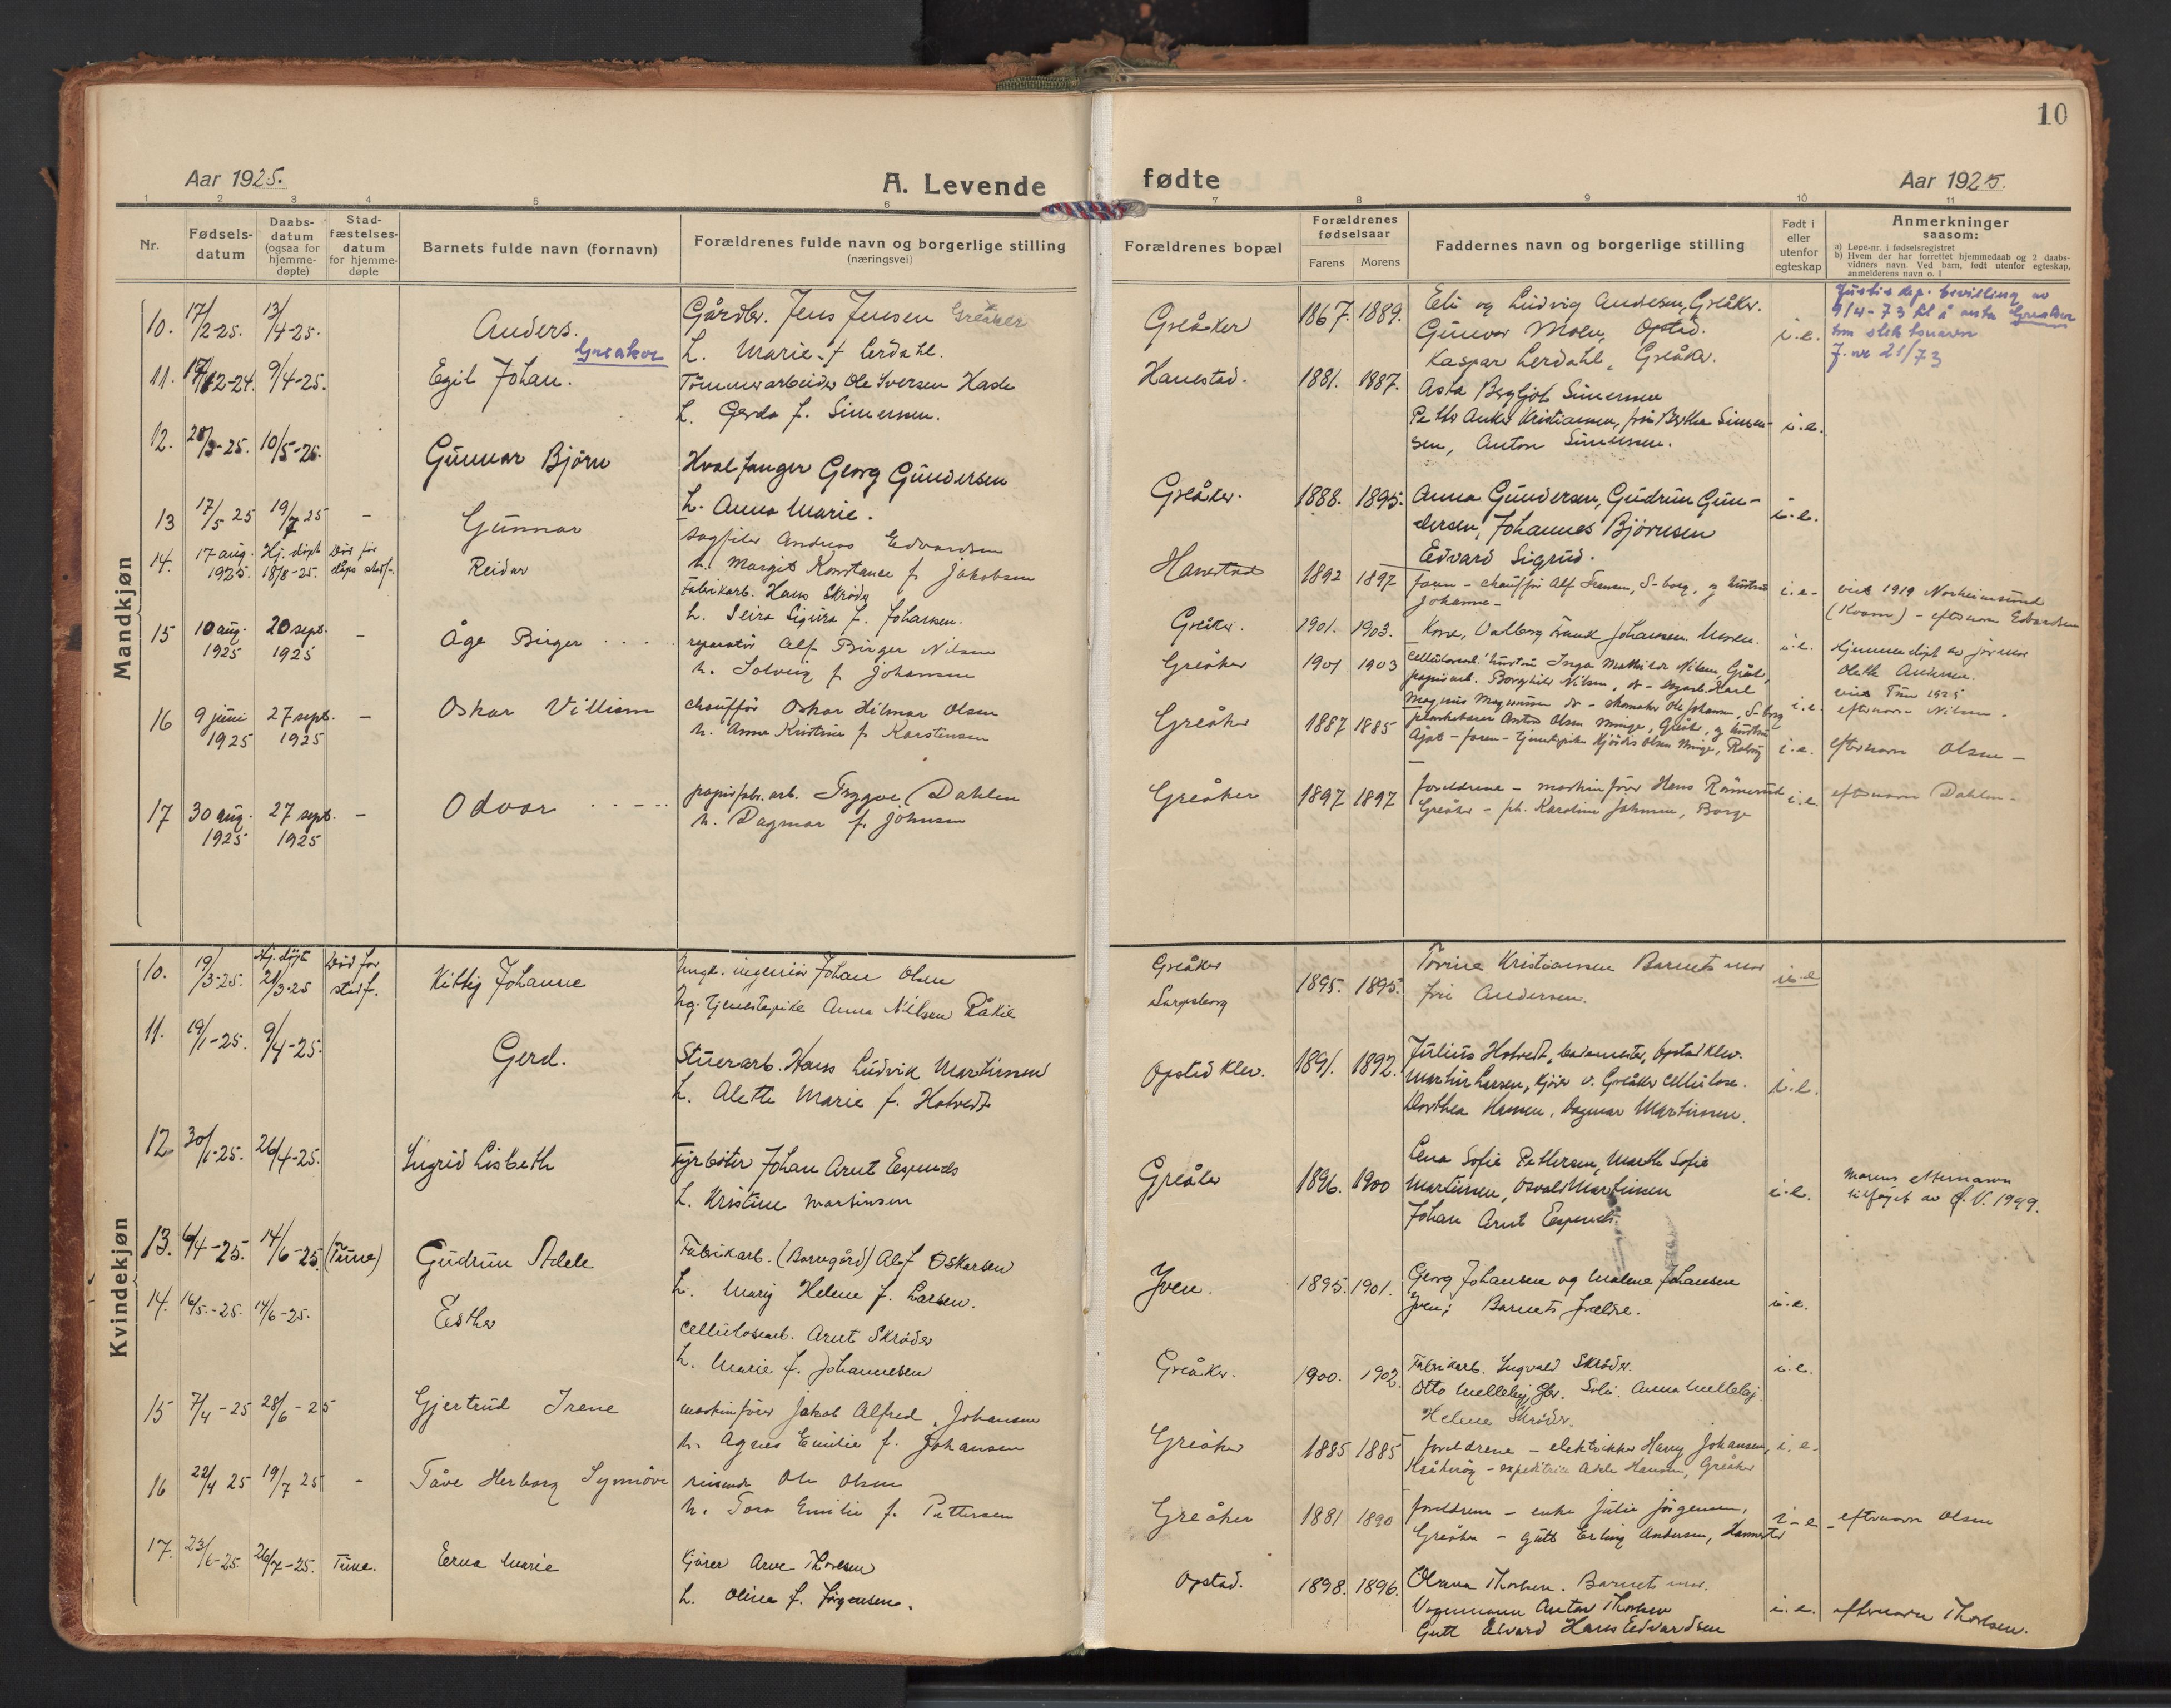 10
Aar 1925.
A. Levende fødte
Aar 1925.
1 2 3 4 5 6 7 8 9 10 11
Nr.
Fødsels-
datum
Daabs-
datum
(ogsaa for
hjemme-
døpte)
Stad-
fæstelses-
datum
for hjemme-
døpte
Barnets fulde navn (fornavn)
Forældrenes fulde navn og borgerlige stilling
(næringsvei)
Forældrenes bopæl
Forældrenes
fødselsaar
Farens Morens
Faddernes navn og borgerlige stilling
Født i
eller
utenfor
egteskap
Anmerkninger
saasom:
a) Løpe-nr. i fødselsregistret
b) Hvem der har forrettet hjemmedaab og 2 daabs-
vidners navn. Ved barn, født utenfor egteskap,
anmelderens navn o. l
Mandkjøn
10. 17/2-25. 13/4-25. Anders. Greaker
Gårdbr. Jens Jensen Greåker
h. Marie f. Lerdahl.
Greåker 1867. 1889.
Eli og Ludvig Andersen, Greåker.
Gunvor Moen, Opstad.
Kaspar Lerdahl, Greåker.
i.e.
Justis dep. bevilling av
9/4-73 til å anta Greaker
som slektsnavn
J. nr 21/73
11. 12-24. 9/4-25. Egil Johan.
Tømmerarbeider Ole Iversen Hasle
h. Gerda f. Simensen.
Hanestad. 1881. 1887.
Asta Bergljot Simensen
Petter Anker Kristiansen, frk Berthe Simen-
sen, Anton Simensen.
i.e.
12. 28/3-25. 10/5-25. Gunnar Bjørn
Hvalfanger Georg Gundersen
h. Anna Marie.
Greåker. 1888. 1895.
Anna Gundersen, Gudrun Gun-
dersen, Johannes Bjørnsen
Edvard Sigrud.
i.e.
13 17/5 25 19/7 25 - Gunnar
sagfiler Andreas Edvardsen
h. Margit Konstance f. Jakobsen
Hanestad 1892 1897
faren - chauffør Alf Iversen, S-borg, og hustru
Johanne -
i.e-
viet 1919 Norheimsund
(Kvam) - efternavn Edvardsen
14. 17 aug. 1925. Hj. døpt 18/8-25. Død før dåps stadf. Reidar
Fabrikarb. Hans Skrøder
h. Signra f. Johansen.
Greåker. 1901. 1903.
Valborg Johansen.
i.e.
Hjemmedøpt av jormor
Olette Andersen.
15 10 aug. 1925 20 sept. 1925 - Åge Birger
reparatør Alf Birger Nilsen
h. Solveig f Johansen
Greåker 1901 1903
hustru Inga Mathilde Nilsen, Greåk.
papirarb. Borghild Nilsen, Karl
Magnus Magnussen skomaker Ole Johansen, S-borg
i.e.
viet Tune 1925
efternavn Nilsen -
16 9 juni 1925 27 sept. 1925 - Oskar Villiam
chauffør Oskar Hilmar Olsen
h. Anna Kristine f. Karstensen
Greåker 1887 1885
plankebærer Anton Olsen Minge, Greåker, og hustru
- faren - tjenestepike Hjørdis Olsen Minge, Rolvsøy
i.e.
efternavn Olsen -
17 30 aug. 1925 27 sept. 1925 - Odvar
papirfabr. arb. Trygve Dahlen
h. Dagmar f. Johnsen
Greåker 1897 1897
foreldrene - maskinfører Hans Rønnerud
Greåker - pk. Karoline Johnsen, Borge
i.e.
efternavn Dahlen -
Kvindekjøn
10. 19/3-25. Hj. døpt 21/3-25 Død før stadf. Kittig Johanne
Ungk. ingeniør Johan Olsen
og tjenestepike Anna Nilsen Råkil
Greåker
Sarpsborg
1895. 1895.
Torine Kristiansen Barnets mor
Fru Andersen.
u.e
11. 19/1-25. 9/4-25. Gerd.
Stuerarb. Hans Ludvik Martinsen
h. Alette Marie f. Hotvedt
Opstad Klev. 1891. 1892.
Julius Hotvedt, bademester, Opstad Klev.
Martin Larsen, Kjører v. Greåker cellulose.
Dorthea Hansen, Dagmar Martinsen.
i.e.
12 30/1-25. 26/4-25. Ingrid Lisbeth
Fyrbøter Johan Arnt Espenæs
h. Kristine Martinsen
Greåker 1896. 1900
Lena Sofie Pettersen, Marthe Sofie
Martinsen, Osvald Martinsen
Johan Arnt Espenæs.
i.e.
Morens etternavn
tilføyet av Ø. V. 1949.
13. 6/4-25. 14/6-25. (Tune) Gudrun Adele
Fabrikarb. (Borregård) Alof Oskarsen
h. Mary Helene f. Larsen.
Yven. 1895. 1901.
Georg Johansen og Malene Johansen
Yven; Barnets forældre.
i.e.
14. 16/5-25. 14/6-25. Esther
Cellulosearb. Arnt Skrøder
h. Marie f. Johannesen
Greåker. 1900. 1902.
Fabrikarb. Ingvald Skrøder.
Otto Mellebÿ, Gbr. Soli. Anna Mellebÿ
Helene Skrøder.
i.e.
15 7/4-25 28/6-25 Gjertrud Irene
maskinfører Jakob Alfred Johansen
h. Agnes Emilie f. Johansen
Greåker 1885 1885
foreldrene - elektriker Harry Johansen,
Kråkerøy - expeditrice Adele Hansen, Greåker
i.e.
16 22/4 25 19/7 25 - Tåve Herborg Synnöve
reisende Ole Olsen
h. Tora Emilie f. Pettersen
Greåker 1881 1890
foreldrene - enke Julie Jørgensen,
Greåker - gutt Erling Andersen, Hannestad
i-e -
efternavn Olsen
17. 23/6-25 26/7-25. Tune. Erna Marie
Kjører Arve Thorsen
h. Oline f. Jørgensen.
Opstad. 1898. 1896.
Olava Thorsen. Barnets mor.
Vognmann Anton Thorsen
Gutt Edvard Hans Edvardsen
i.e.
efternavn Thorsen.